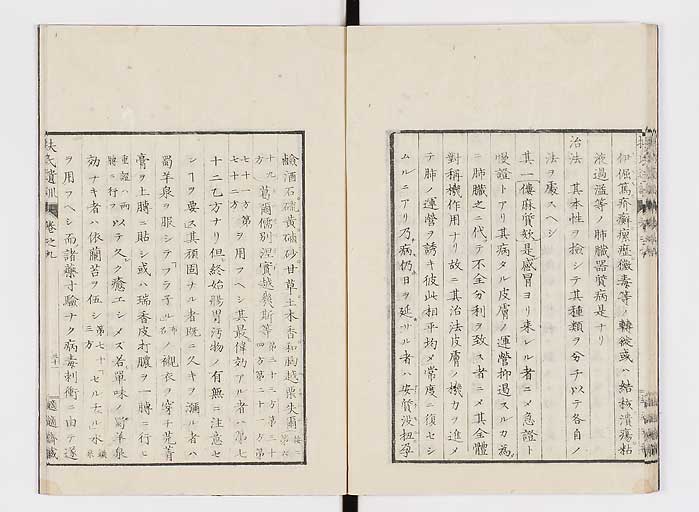 伊倔篤疥癬瘰癧黴毒等ノ轉徙或ハ結核潰瘍粘
液過溢等ノ肺臓器質病是ナリ
治法 其本性ヲ撿シテ其種類ヲ分チ以テ各自ノ
法ヲ處スヘシ
其一僂麻質欤是感冒ヨリ来レル者ニメ急證ト
慢證トアリ其病タル皮膚ノ運營抑遏スルカ為
ニ肺臓之ニ代テ不全分利ヲ致ス者ニメ其全體
對稱機作用ナリ故ニ其治法皮膚ノ機力ヲ進メ
テ肺ノ運營ヲ誘キ彼此相平均メ常度ニ復セシ
ムルニアリ乃病仍日ヲ延サル者ハ安質没扭孕
鹼酒石硫黄磠砂甘草土木香和胸越栗失爾
十九方 葛爾儒別涅實越幾斯等第二十三方第三十四方第二十一方第
七十一方第七十二方ヲ用フヘシ其最偉効アル者ハ第七
十二乙方ナリ但終始腸胃汚物ノ有無ニ注意セ
シヿヲ要ス其頑固ナル者既ニ久キヲ彌ル者ハ
蜀羊泉ヲ服シテフラ子ル布名ノ襯衣ヲ穿チ芫菁
膏ヲ上膊ニ貼シ或ハ瑞香皮打膿ヲ一膊ニ行ヒ
重證ハ両膊ニ行ヲ以テ久ク癒エシメス若單味ノ蜀羊泉
効ナキ者ハ依蘭苔ヲ伍シ第七十三方「セルテル水礦泉
ヲ用フヘシ而諸藥寸驗ナク病毒刺衝ニ由テ遂
扶氏遺訓 卷之九
適適齋藏